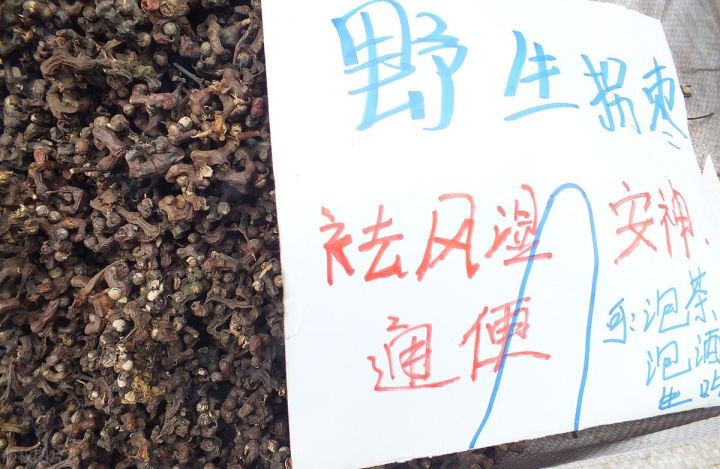 野生拐枣
祛风湿 安神、
通便
可:泡茶、
泡酒
生吃